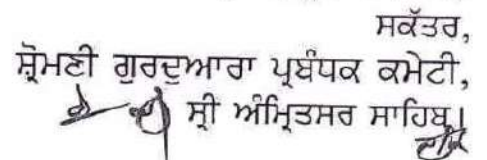 ਸਕੱਤਰ,
ਸ਼੍ਰੋਮਣੀ ਗੁਰਦੁਆਰਾ ਪ੍ਰਬੰਧਕ ਕਮੇਟੀ,
ਸ੍ਰੀ ਅੰਮ੍ਰਿਤਸਰ ਸਾਹਿਬ।